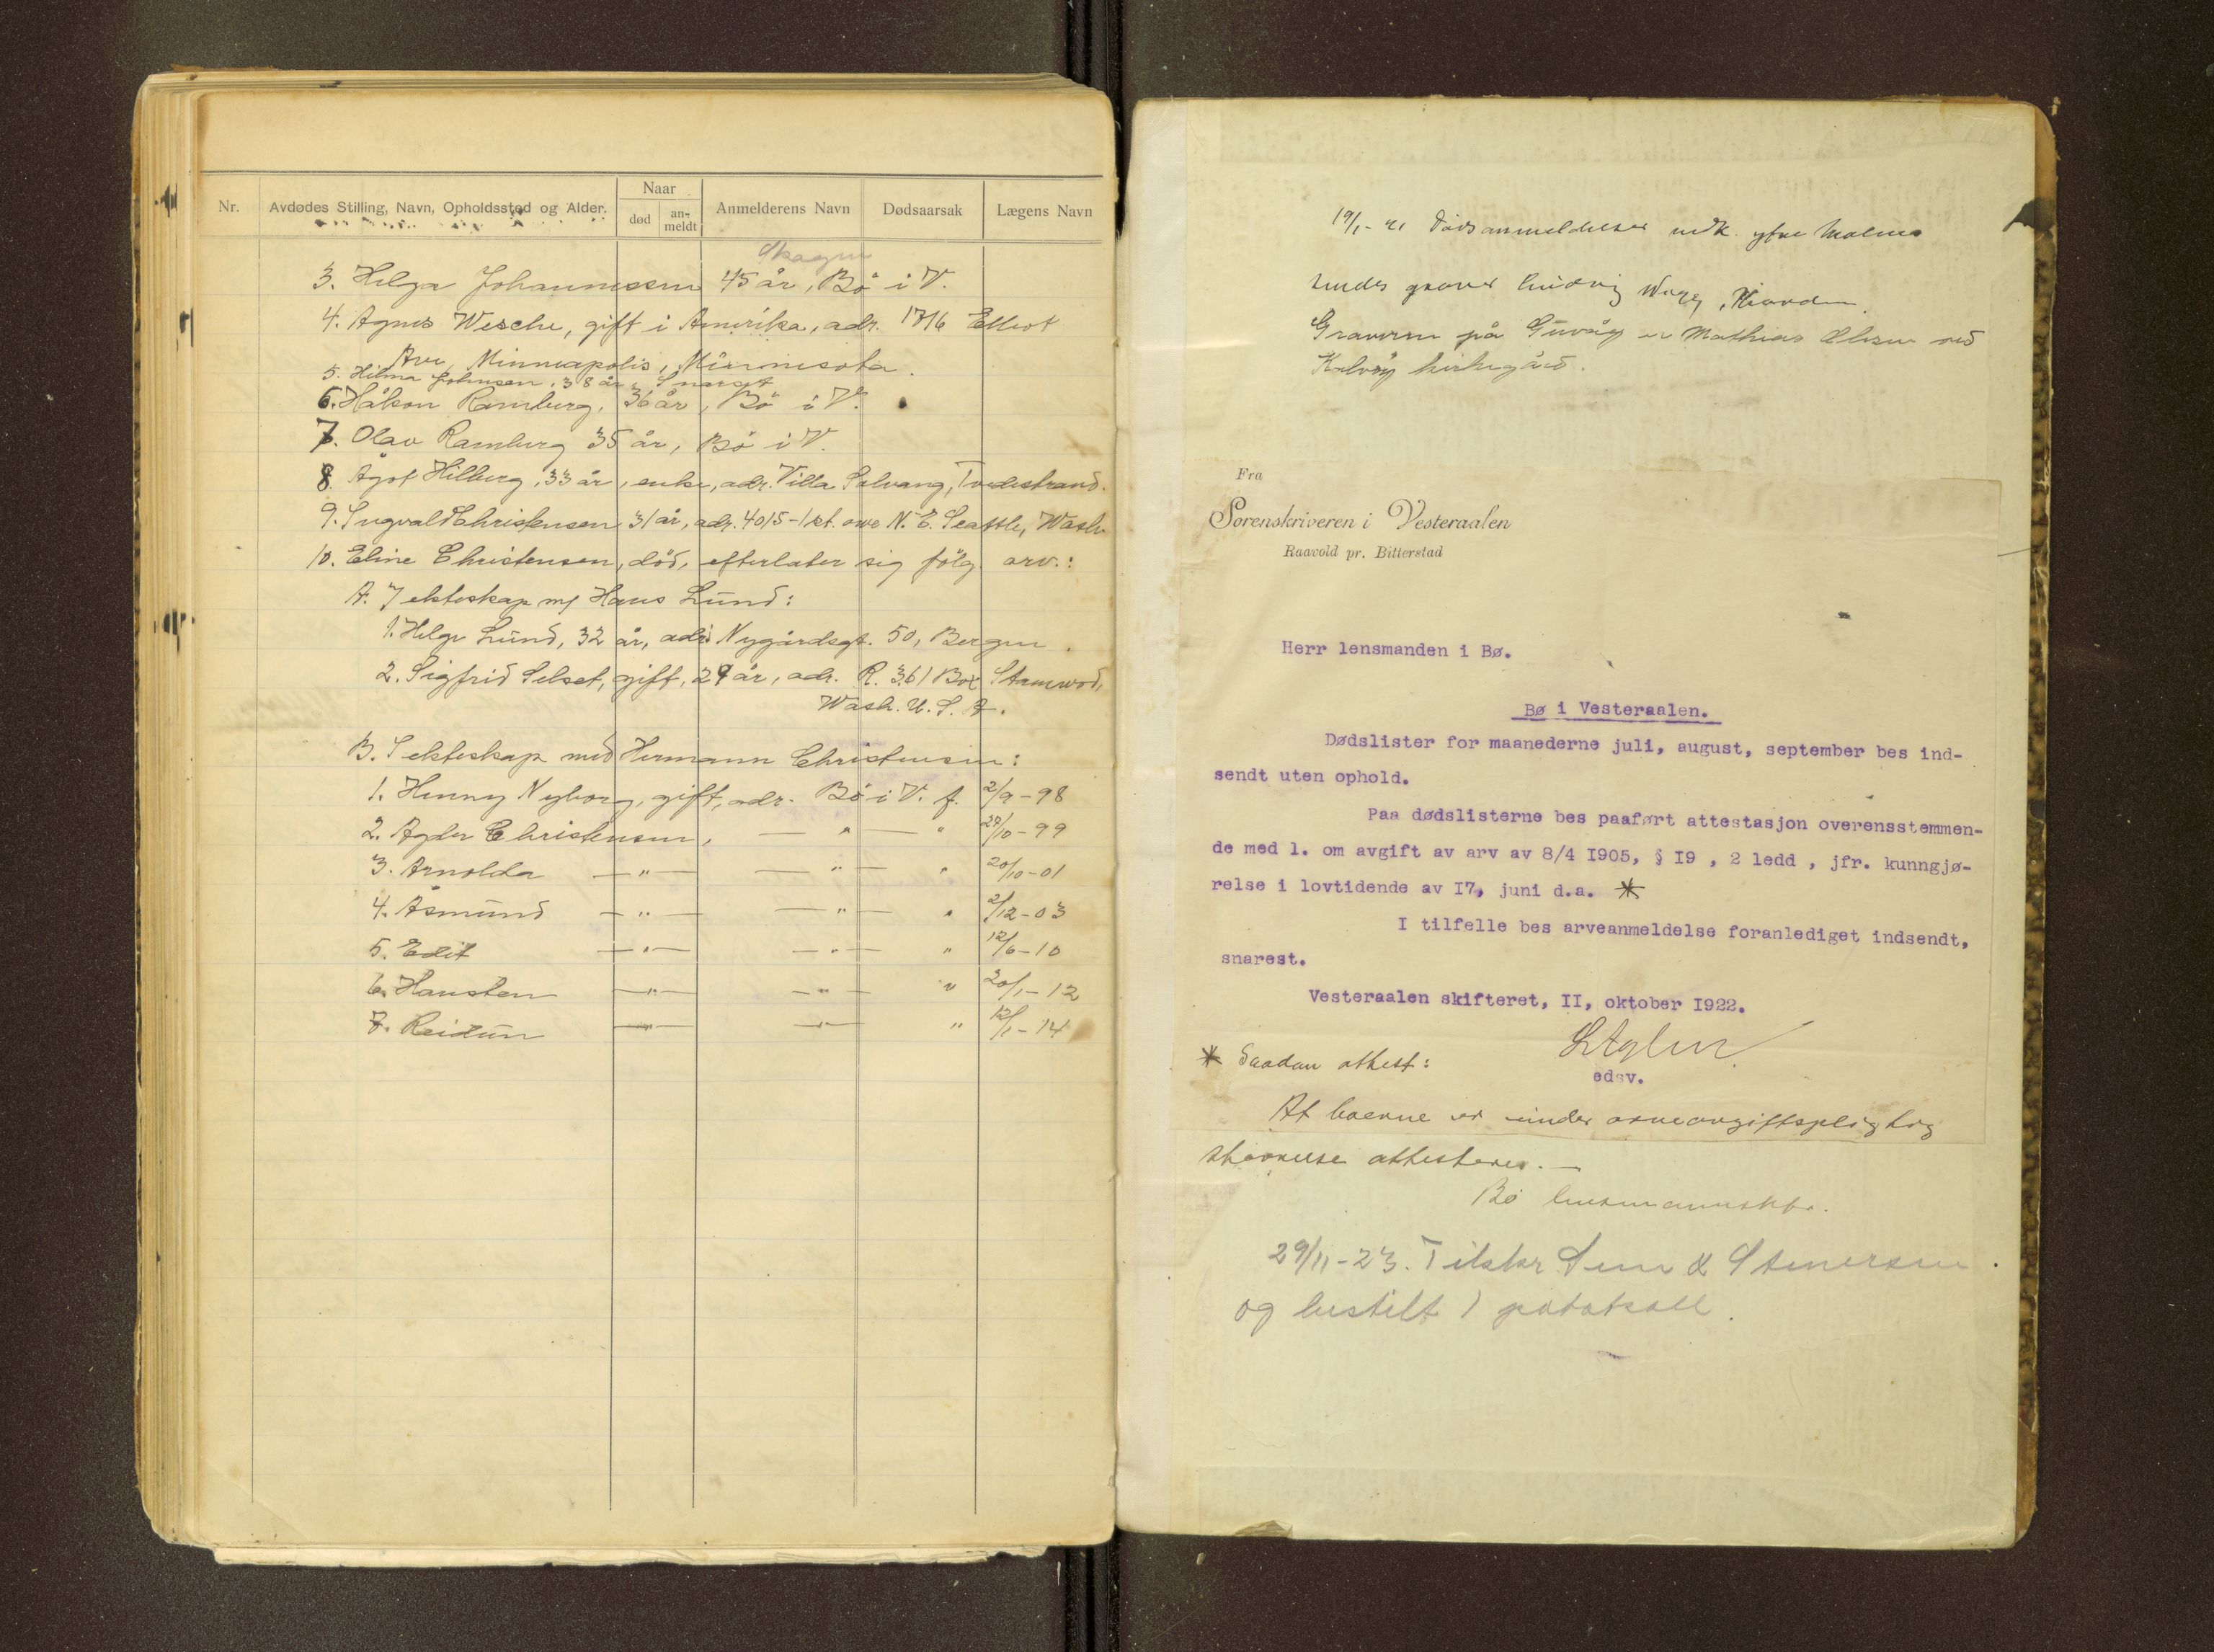 Nr.
Avdødes Stilling, Navn, Opholdssted og Alder.
Naar
død
an-
meldt
Anmelderens Navn
Dødsaarsak
Lægens Navn
Skagen
3. Helga Johannessen 45 år, Bö i V.
4. Agnes Wesche, gift i Amerika, adr. 1716 Elliot
Ave, Minneapolis, Minnesota.
5. Hilma Johnsen, 38 år,
6. Håkon Ramberg, 36 år, Bö i V.
7. Olav Ramberg 35 år, Bö i V.
8. Agot Hilberg, 33 år, enke, adr. Villa Solvang, Tvedestrand.
9. Ingvald Christensen 31 år, adr. 4015-1st. ave N. E. Seattle, Wash.
10. Eline Christensen, död, efterlater sig fölg. arv.:
A. I ekteskap m/ Hans Lund:
1. Helge Lund, 32 år, adr. Nygårdsgt. 50, Bergen.
2. Sigfrid Selset, gift, 29 år, adr. R. 361 Box Stanwod,
Wash. U. S. A.
B. I ekteskap med Hermann Christensen:
1. Henny Nyborg, gift, adr. Bö i V. f. 2/9-98
2. Agder Christensen, — " — " 20/10-99
3. Arnolda — " — — " — " 20/10-01
4. Åsmund — " — — " — " 2/12-03
5. Edit — " — — " — " 12/6-10
6. Hansten — " — — " — " 20/1-12
7. Reidun — " — — " — " 12/1-14
19/1-21 Dödsanmeldelser
graver Ludvig
Graveren på Guvåg er Mathias Olsen ved
kirkegård.
Fra
Sorenskriveren i Vesteraalen
Raavold pr. Bitterstad
Herr lensmanden i Bø.
Bø i Vesteraalen.
Dødslister for maanederne juli, august, september bes ind-
sendt uten ophold.
Paa dødslisterne bes paaført attestasjon overensstemmen-
de med l. om avgift av arv av 8/4 I905, § I9 , 2 ledd , jfr. kunngjø-
relse i lovtidende av I7, juni d.a. *
I tilfelle bes arveanmeldelse foranlediget indsendt,
snarest.
Vesteraalen skifteret, II, oktober I922.
edsv.
* Saadan attest:
At boerne er under arveavgiftspligtig
störrelse attesteres. —
Bö lensmannsktr.
29/11-23. Tilskr. Sem & Stenersen
og bestilt 1 protokoll.